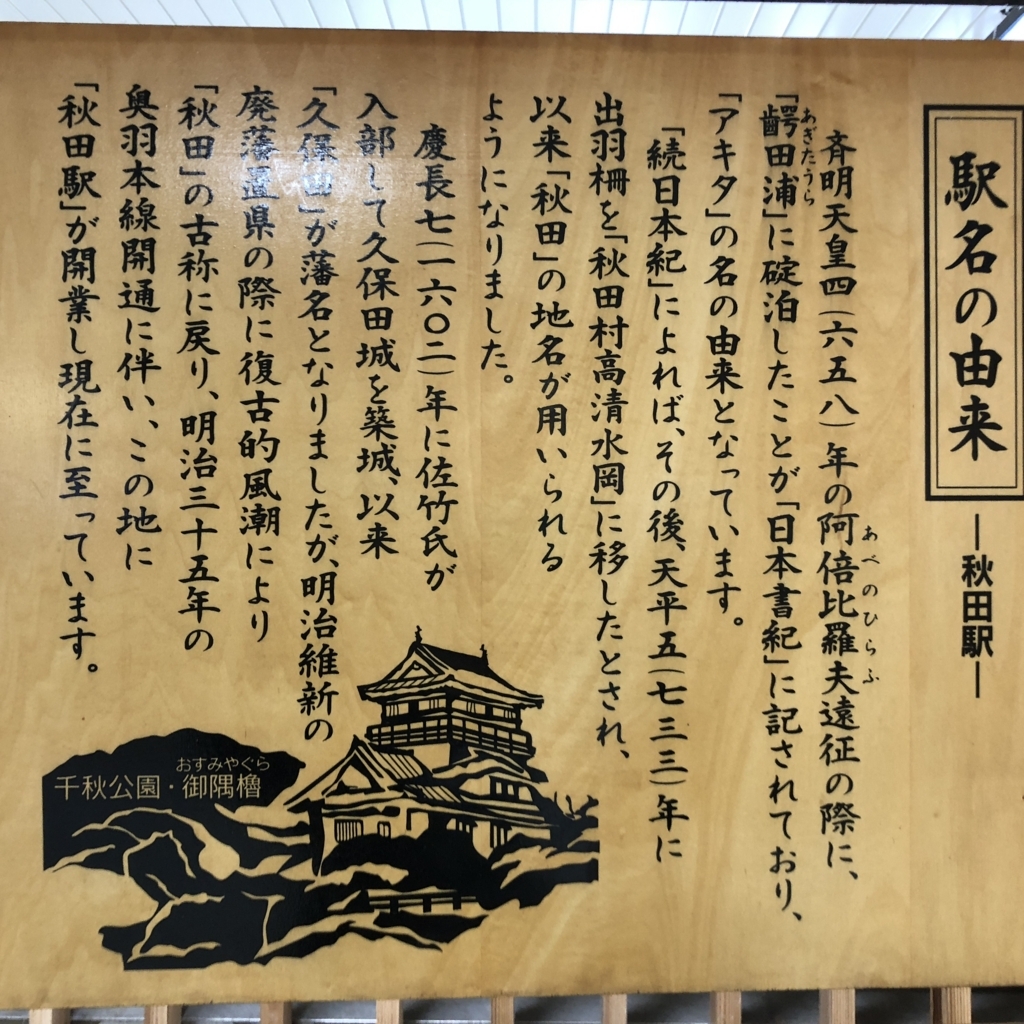 駅名の由来
―秋田駅―
斉明天皇四(六五八)年の阿倍比羅夫遠征の際に、
あべのひらふ
「齶田浦」に碇泊したことが「日本書紀」に記されており、
あぎたうら
「アキタ」の名の由来となっています。
「続日本紀」によれば、その後、天平五(七三三)年に
出羽柵を「秋田村高清水岡」に移したとされ、
以来「秋田」の地名が用いられる
ようになりました。
慶長七(一六〇二)年に佐竹氏が
入部して久保田城を築城、以来
「久保田」が藩名となりましたが、明治維新の
廃藩置県の際に復古的風潮により
「秋田」の古称に戻り、明治三十五年の
奥羽本線開通に伴い、この地に
「秋田駅」が開業し現在に至っています。
おすみやぐら
千秋公園・御隅櫓